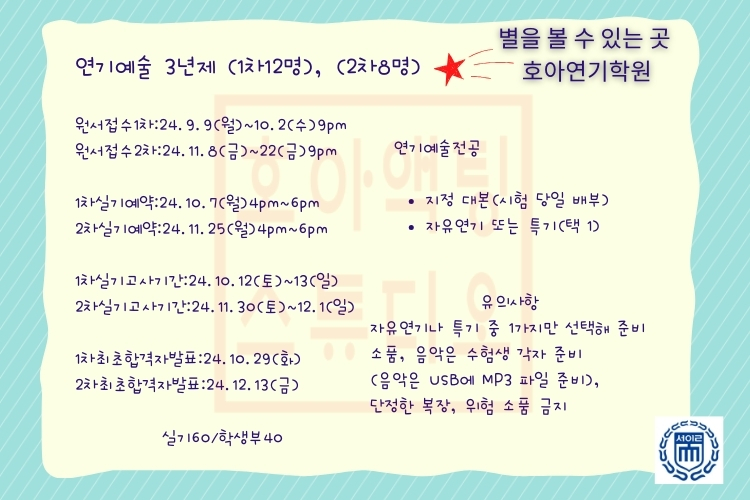 별을 볼 수 있는 곳
호아연기학원
연기예술 3년제 (1차12명), (2차8명)
원서접수1차:24.9.9(월)~10.2(수)9pm
원서접수2차:24.11.8(금)~22(금)9pm
1차실기예약:24.10.7(월)4pm~6pm
2차실기예약:24.11.25(월)4pm~6pm
1차실기고사기간:24.10.12(토)~13(일)
2차실기고사기간:24.11.30(토)~12.1(일)
1차최초합격자발표:24.10.29(화)
2차최초합격자발표:24.12.13(금)
실기60/학생부40
연기예술전공
• 지정 대본(시험 당일 배부)
• 자유연기 또는 특기(택 1)
유의사항
자유연기나 특기 중 1가지만 선택해 준비
소품, 음악은 수험생 각자 준비
(음악은 USB에 MP3 파일 준비),
단정한 복장, 위험 소품 금지
호아액팅
스튜디오
서이대